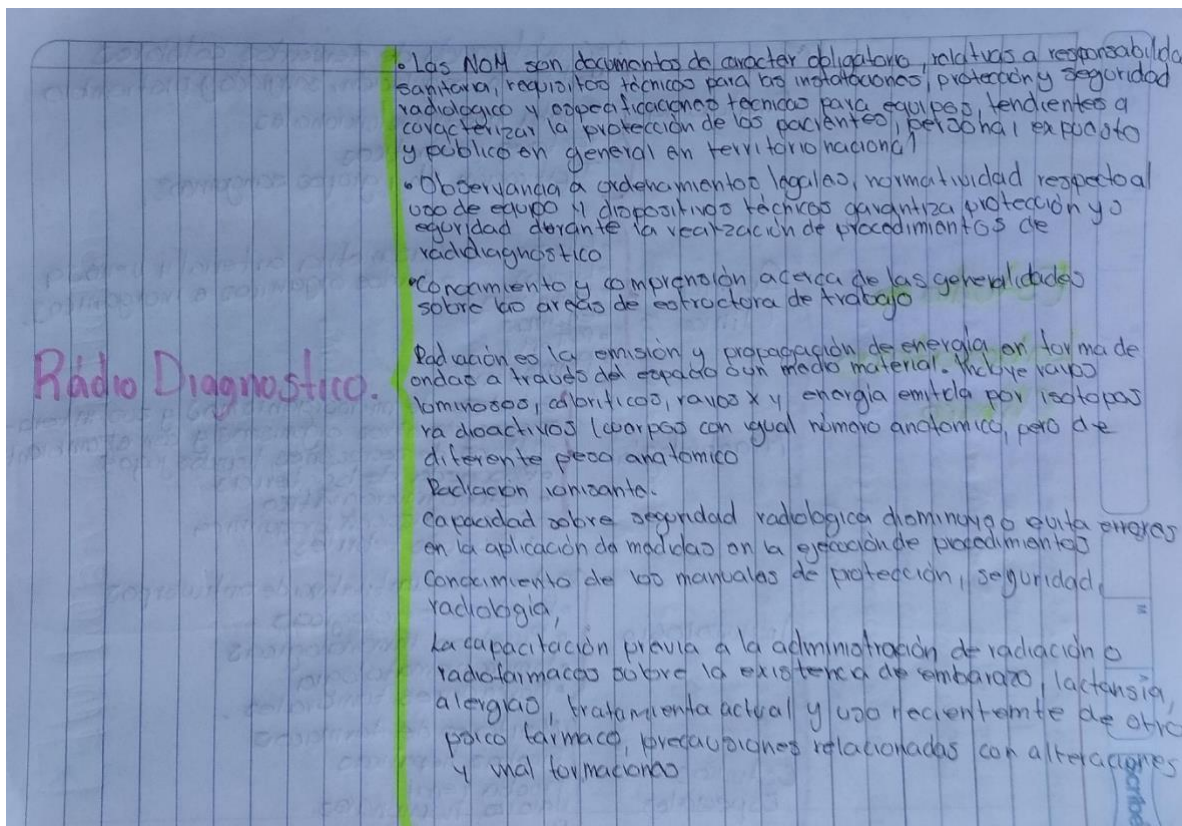 Rádio Diagnostico.
• Las NOM son documentos de caracter obligatorio, relativas a responsabilida
sanitaria, requisitos técnicos para las instalaciones, protección y seguridad
radiologico y especificaciones tecnicas para equipos, tendientes a
caracterizar la protección de los pacientes, personal expuesto
y público en general en territorio nacional
• Observancia a ordenamientos legales, normatividad respecto al
uso de equipo y dispositivos técnicos garantiza protección y s
eguridad durante la realización de procedimientos de
radidiagnostico
• Conocamiento y comprensión acerca de las generalidades
sobre las areas de estructora de trabajo
Radiación es la emisión y propagación de energía en forma de
ondas a través del espacio o un medio material. Incluye rayos
luminosos, calorificos, rayos x y energía emitida por isotopas
radioactivos con igual número anatomico, pero de
diferente peso anatomico
Radiacion ionisante.
Capacidad sobre seguridad radiologica disminuye o evita errores
en la aplicación de medidas en la ejecución de procedimientos
Conocimiento de los manuales de protección, seguridad,
radiologia,
La capacitación previa a la administración de radiación o
radiofarmacos sobre la existencia de embarazo, lactansia,
alergias, tratamienta actual y uso recientemte de otro
farmaco, precauciones relacionadas con alteraciones
y mal formaciones
Scribe